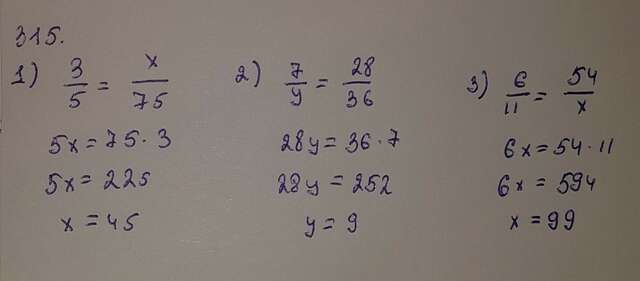 315.
1) 3/5 = x/75
5x = 75 · 3
5x = 225
x = 45
2) 7/y = 28/36
28y = 36 · 7
28y = 252
y = 9
3) 6/11 = 54/x
6x = 54 · 11
6x = 594
x = 99